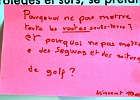 olédés et sols, se prélas
Pourquoi ne pas mettre
toute les routes sous-terre?
et pourquoi ne pas mettre
des Segways et des voitures
de golf?
Vincent